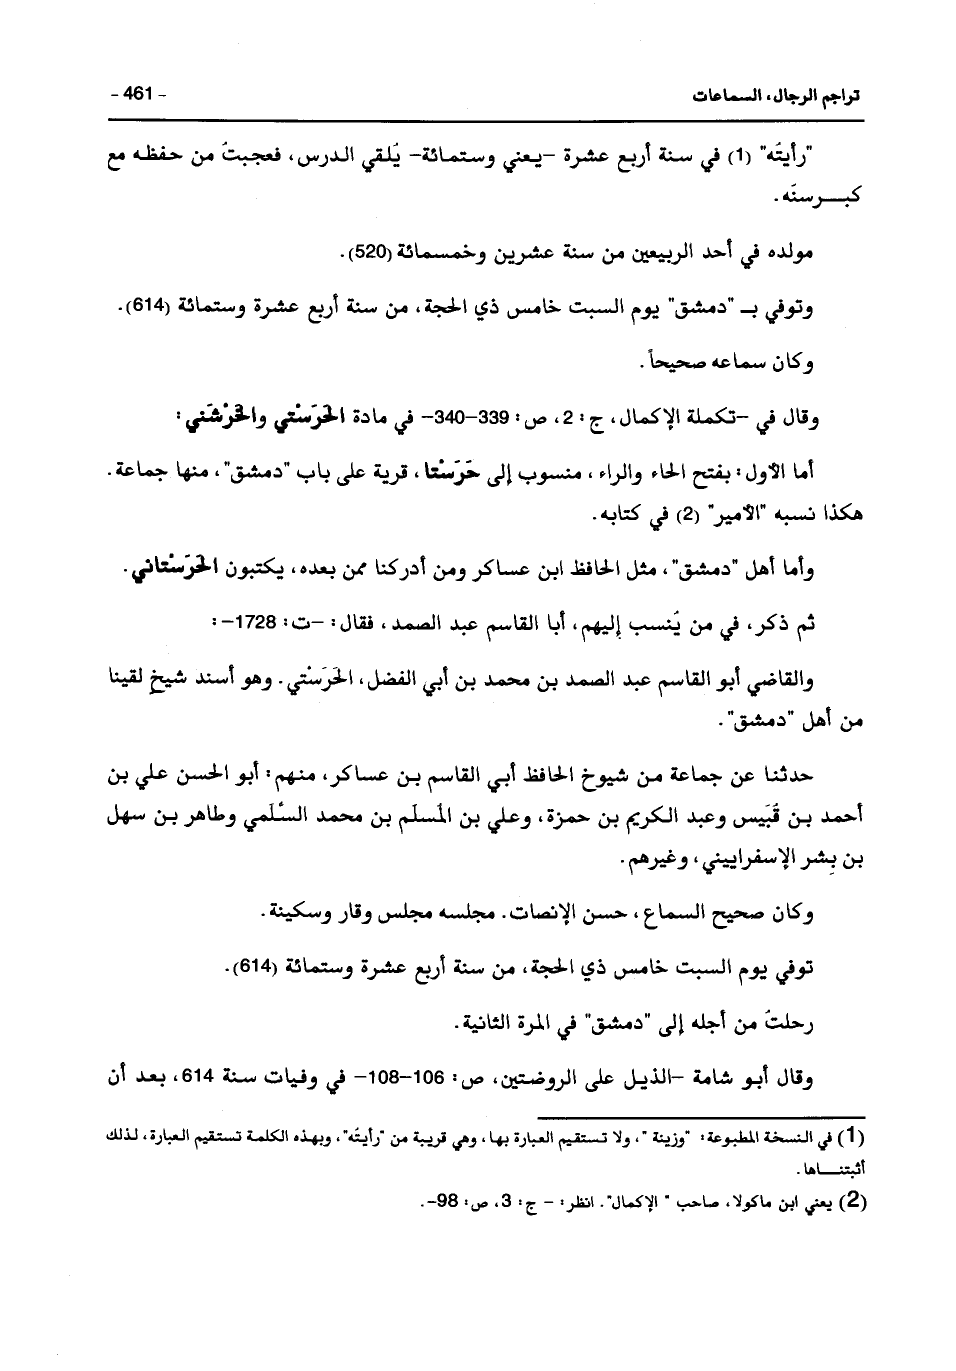 تراجم الرجال، السماعات - 461 -
"رأيتَه" (1) في سنة أربع عشرة –يعني وستمائة– يُلقي الدرس، فعجبتُ من حفظه مع
كبــرسنّه.
مولده في أحد الربيعين من سنة عشرين وخمسمائة (520).
وتوفي بـ "دمشق" يوم السبت خامس ذي الحجة، من سنة أربع عشرة وستمائة (614).
وكان سماعه صحيحاً.
وقال في –تكملة الإكمال، ج: 2، ص: 339–340– في مادة الحَرَسْتي والحَرْشَني:
أما الأول: بفتح الحاء والراء، منسوب إلى حَرَسْتا، قرية على باب "دمشق"، منها جماعة.
هكذا نسبه "الأمير" (2) في كتابه.
وأما أهل "دمشق"، مثل الحافظ ابن عساكر ومن أدركنا ممن بعده، يكتبون الحَرَسْتاني.
ثم ذكر، في من يُنسب إليهم، أبا القاسم عبد الصمد، فقال: –ت: 1728–:
والقاضي أبو القاسم عبد الصمد بن محمد بن أبي الفضل، الحَرَسْتي. وهو أسند شيخ لقينا
من أهل "دمشق".
حدثنا عن جماعة من شيوخ الحافظ أبي القاسم بن عساكر، منهم: أبو الحسن علي بن
أحمد بن قُبَيس وعبد الكريم بن حمزة، وعلي بن المُسلم بن محمد السُلَمي وطاهر بن سهل
بن بِشر الإسفراييني، وغيرهم.
وكان صحيح السماع، حسن الإنصات. مجلسه مجلس وقار وسكينة.
توفي يوم السبت خامس ذي الحجة، من سنة أربع عشرة وستمائة (614).
رحلتُ من أجله إلى "دمشق" في المرة الثانية.
وقال أبو شامة –الذيل على الروضتين، ص: 106–108– في وفيات سنة 614، بعد أن
(1) في النسخة المطبوعة: "وزينة"، ولا تستقيم العبارة بها، وهي قريبة من "رأيتَه"، وبهذه الكلمة تستقيم العبارة، لذلك
أثبتنــاها.
(2) يعني ابن ماكولا، صاحب "الإكمال". انظر: – ج: 3، ص: 98–.